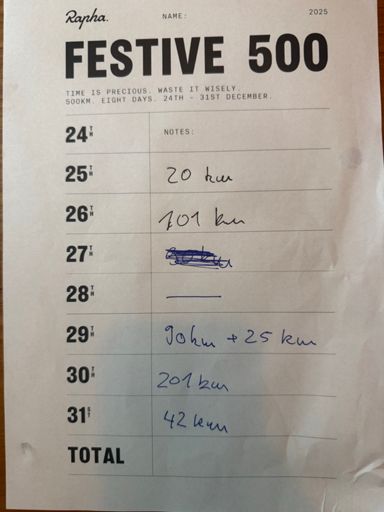 Rapha.
NAME:
2025
FESTIVE 500
TIME IS PRECIOUS. WASTE IT WISELY.
500KM. EIGHT DAYS. 24TH - 31ST DECEMBER.
24TH NOTES:
25TH 20 km
26TH 101 km
27TH
28TH —
29TH 90km + 25 km
30TH 201 km
31ST 42 km
TOTAL